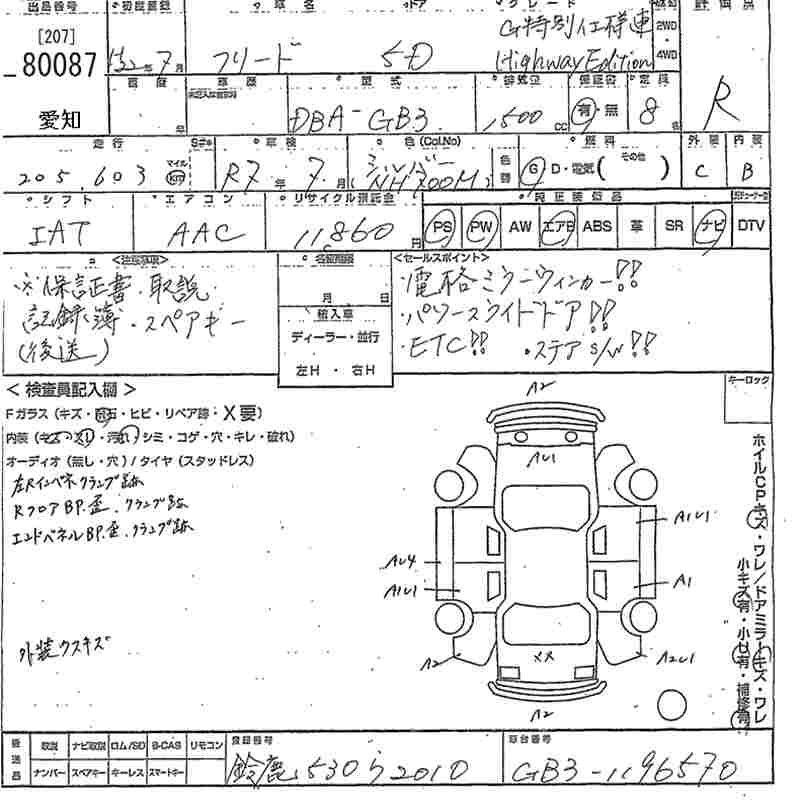 出品番号 初度登録 車名 ドア グレード 駆動 評価点
[207]
80087
愛知
年 7月 フリード 5D G特別仕様車 Highway Edition 2WD・4WD R
車歴 型式 排気量 保証書 定員
DBA-GB3 1,500cc 有・無 8名
走行 車検 色(Col.No) 燃料 外装 内装
205,603 マイル km R7年 7月 シルバー (NH700M) 色替 G・D・電気( その他 ) C B
シフト エアコン リサイクル預託金 純正装備品
IAT AAC 11,860円 PS PW AW エアB ABS 革 SR ナビ DTV
<注意事項>
※保証書・取説
記録簿・スペアキー
(後送)
名変期限
月 日
輸入車
ディーラー・並行
左H・右H
<セールスポイント>
・電格ミラーウィンカー!!
・パワースライドドア!!
・ETC!! ・ステアS/W!!
<検査員記入欄>
Fガラス(キズ・飛石・ヒビ・リペア跡・X要)
内装(キズ・スリ・汚れ・シミ・コゲ・穴・キレ・破れ)
オーディオ(無し・穴)/タイヤ(スタッドレス)
左Rインパネクランプ跡
RフロアBP.歪.クランプ跡
エンドパネルBP.歪.クランプ跡
外装ウスキズ
キーロック
A2
AU1
A1U1
AU4
A1U1
A1
XX
A2
A2U1
A2
ホイルCPキズ・ワレ/ドアミラーキズ・ワレ
小キズ有・小U有・補修有
後送品 取説 ナビ取説 ロム/SD B-CAS リモコン 登録番号 車台番号
ナンバー スペアキー キーレス スマートキー 鈴鹿 530 ら 2010 GB3-1196570